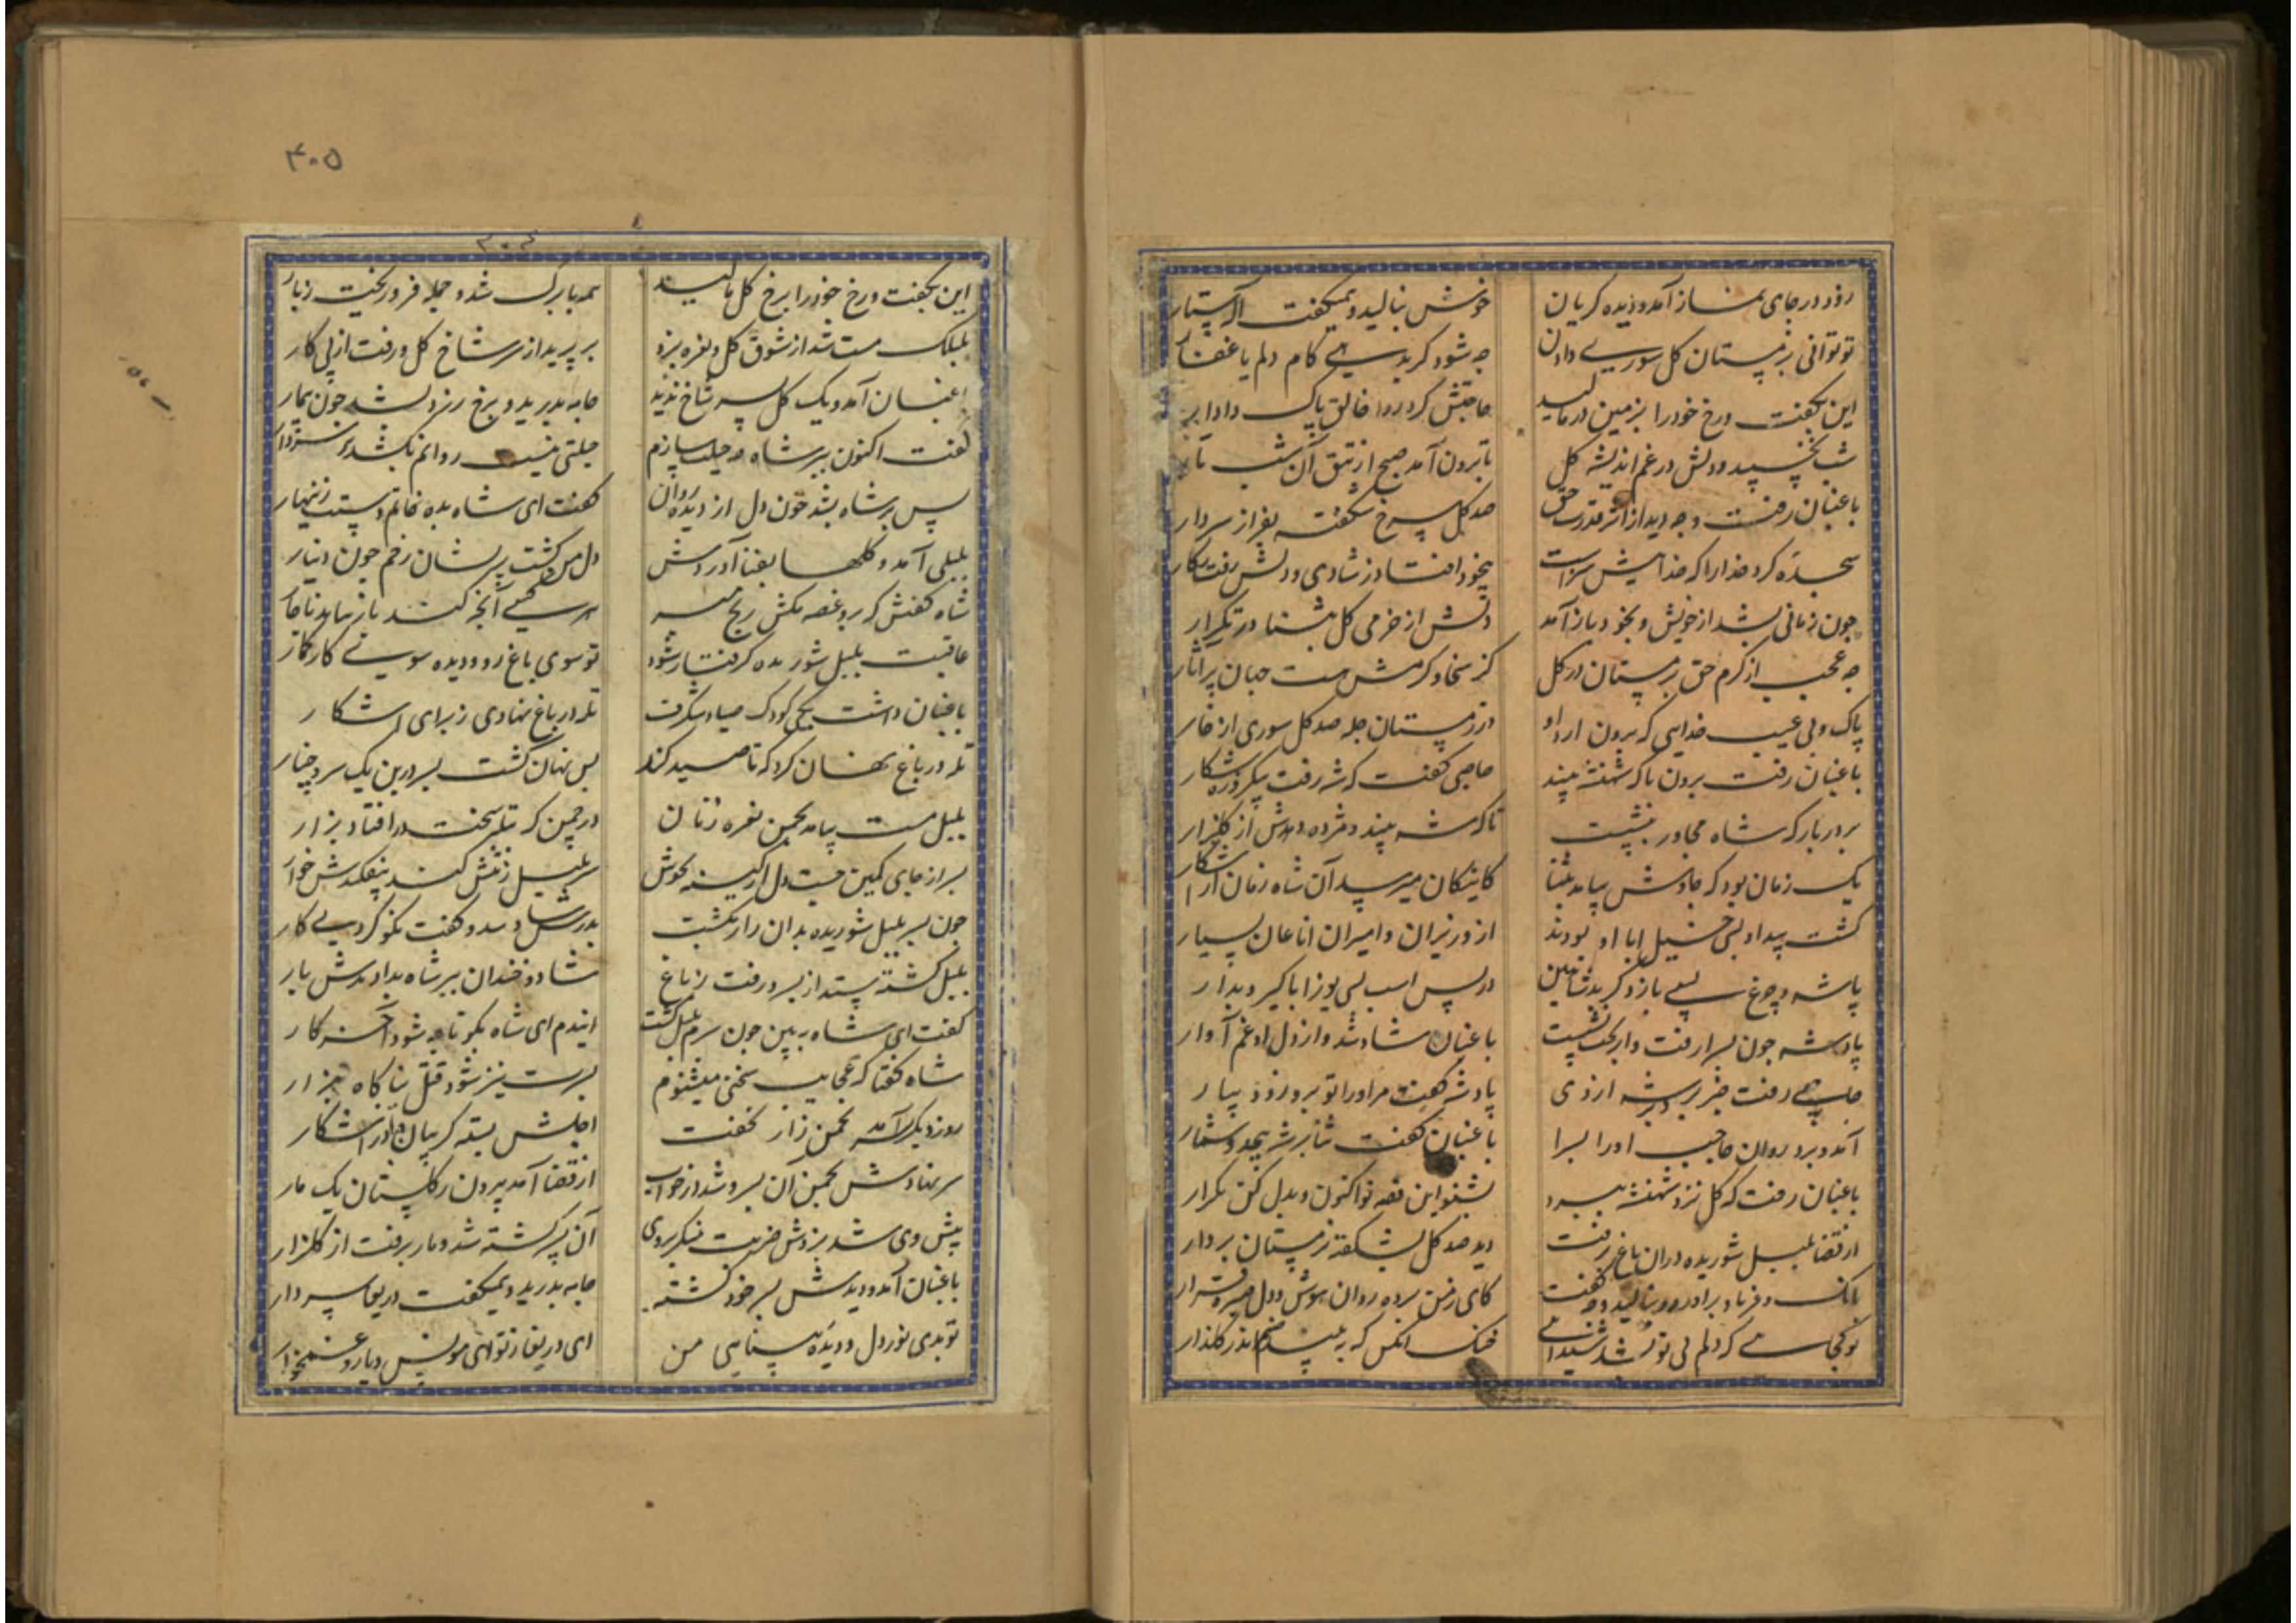 رود در جای نماز آمد و دیده کریان خوش بنالید و همیکفت
تو توانی بزمستان کل سوری دادن چه شود کر بدهی کام دلم یا غفار
این بکفت و رخ خود را بزمین در مالید حاجتش کرد روا خالق پاک دادار
شب نخسپید و دلش در غم اندیشه کل تا برون آمد صبح از تتق آن شب تار
باغبان رفت و چه دید از اثر قدرت حق صد کل سرخ شکفته بفراز سر دار
سجده کرد خدا را که خداییش سزاست بیخود افتاد ز شادی و دلش رفت ز کار
چون زمانی بشد از خویش و بخود باز آمد دلش از خرمی کل بثنا در تکرار
چه عجب از کرم حق بزمستان در کل کز سخا و کرمش هست جهان پر
پاک و بی عیب خدایی که برون ارد او در زمستان جمله صد کل سوری از خار
باغبان رفت برون تا که شهنشه بیند حاجبی کفت که شه رفت بشکار
بر در بارکه شاه مجاور بنشست تا که شه بیند و مژده دهدش از کلزار
یک زمان بود که چاوش بیامد کاینکان میرسد آن شاه زمان از اشکار
کشت پیدا و بسی خیل ابا او بودند از وزیران و امیران اناعان بسیار
پاشه و چرغ بسی باز و شاهین در پس اسب بسی یوز ابا کیر و بدار
پادشه چون بسرا رفت و بتخت نشست باغبان شاد شد و از دل او غم آوار
حاجب رفت خبر بر شه از وی پادشه کفت مر او را تو برو زود بیار
آمد و برد روان حاجب او را بسرا باغبان کفت ثنا بر شه بیحد و شمار
باغبان رفت که کل نزد شهنشه ببرد بشنو این قصه تو اکنون و بدل کن تکرار
از قضا بلبل شوریده در آن باغ برفت دید صد کل بشکفته زمستان بر دار
بانک و فریاد برآورد و بنالید و چه کفت کای ز من برده روان هوش و دل و صبر و قرار
تو کجایی که دلم بی تو شد شیدایی خنک آنکس که به بیند صنم اندر کلزار
۴۰۵
این بکفت و رخ خود را برخ کل مالید همه بابرک شد و جمله فرو ریخت ز بار
بلبلک مست شد از شوق کل و نعره بزد بر پرید از سر شاخ کل و رفت از پی کار
باغبان آمد و یک کل بسر شاخ ندید جامه بدرید و برخ زرد بشد چون بیمار
کفت اکنون ببر شاه چه حیلت سازم حیلتی نیست روانم بکشد
پس بر شاه بشد خون دل از دیده روان کفت ای شاه بده خاتم دستت زنهار
بلبلی آمد و کلها بفنا آوردش دل من کشت پریشان رخم چون دینار
شاه کفتش که برو غصه مکش رنج مبر
عاقبت بلبل شوریده کرفتار شود تو سوی باغ رو و دیده سوی کار کمار
باغبان داشت یکی کودک صیاد شکرف تله در باغ نهادی ز برای اشکار
تله در باغ نهان کرد که تا صید کند پس نهان کشت پسر در بن یک سرو چنار
بلبل مست بیامد بچمن نعره زنان در چمن کرد تله سخت در افتاد بزار
پسر از جای کمین جست دل از کینه بجوش سر بلبل ز تنش کند بیفکندش خوار
چون پسر بلبل شوریده بدان زار بکشت پدرش شاد شد و کفت نکو کردی کار
بلبل کشته بستد از پسر و رفت ز باغ شاد و خندان ببر شاه بدادندش بار
کفت ای شاه ببین چون سرم بلبل کشت ایندم ای شاه بکو تا چه شود آخر کار
شاه کفتا که عجایب سخنی میشنوم پسرت نیز شود قتل بناکاه هزار
روز دیکر پسر آمد بچمن زار بخفت اجلش بسته کریبان
سر نهادش بچمن آن پسر و شد در خواب از قضا آمد بیرون ز کلستان یک مار
پیش وی شد بزدش ضربت آن پسر کشته شد و مار برفت از کلزار
باغبان آمد و دیدش پسر خود کشته جامه بدرید و همیکفت دریغا پسر دار
تو بدی نور دل و دیده بینایی من ای دریغا ز تو ای مونس و یار و غمخوار